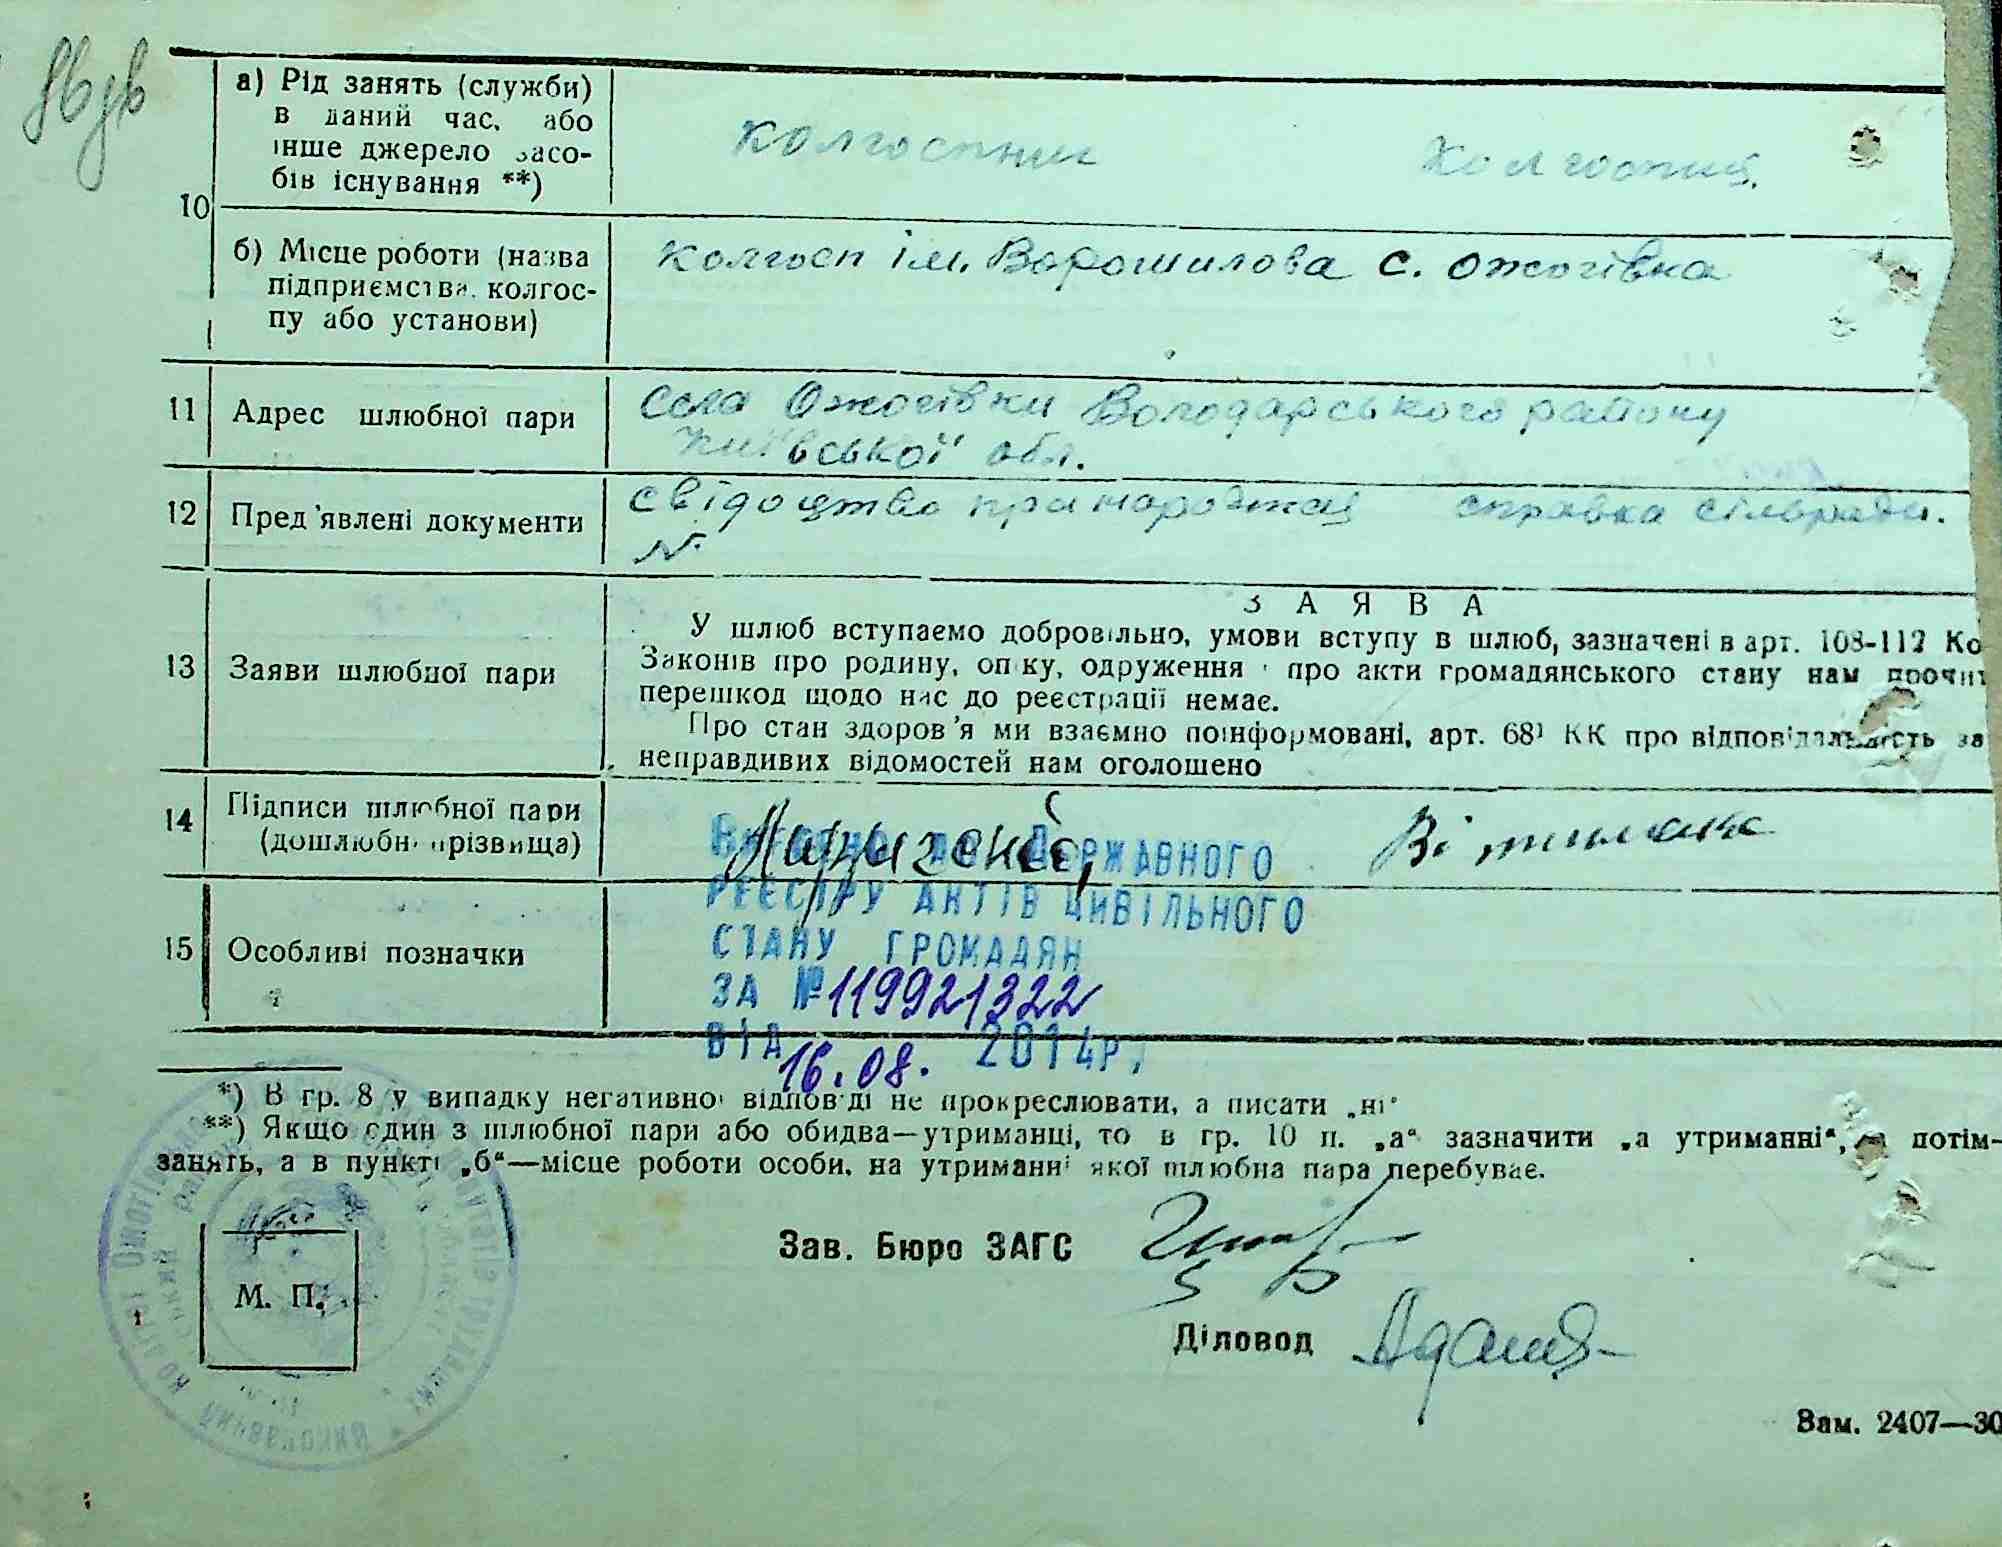 10
а) Рід занять (служби)
в даний час, або
інше джерело засо-
бів існування **)
колгоспник колгоспниц.
б) Місце роботи (назва
підприємства, колгос-
пу або установи)
колгосп ім. Ворошилова с. Ожогівка
11 Адрес шлюбної пари
села Ожогівки Володарського району
Київської обл.
12 Пред'явлені документи
свідоцтво про народжен справка сільради.
№
13 Заяви шлюбної пари
ЗАЯВА
У шлюб вступаємо добровільно, умови вступу в шлюб, зазначені в арт. 108-112 Ко
Законів про родину, опіку, одруження і про акти громадянського стану нам прочит
перешкод щодо нас до реєстрації немає.
Про стан здоров'я ми взаємно поінформовані, арт. 68¹ КК про відповідальність за
неправдивих відомостей нам оголошено
14 Підписи шлюбної пари
(дошлюбні прізвища)
15 Особливі позначки
Внесено до Державного
реєстру актів цивільного
стану громадян
за №119921322
від 16.08. 2014р.
*) В гр. 8 у випадку негативної відповіді не прокреслювати, а писати „ні“
**) Якщо один з шлюбної пари або обидва—утриманці, то в гр. 10 п. „а“ зазначити „а утриманні“, а потім—
занять, а в пункті „б“—місце роботи особи, на утриманні якої шлюбна пара перебуває.
М. П.
Зав. Бюро ЗАГС
Діловод
Зам. 2407—30